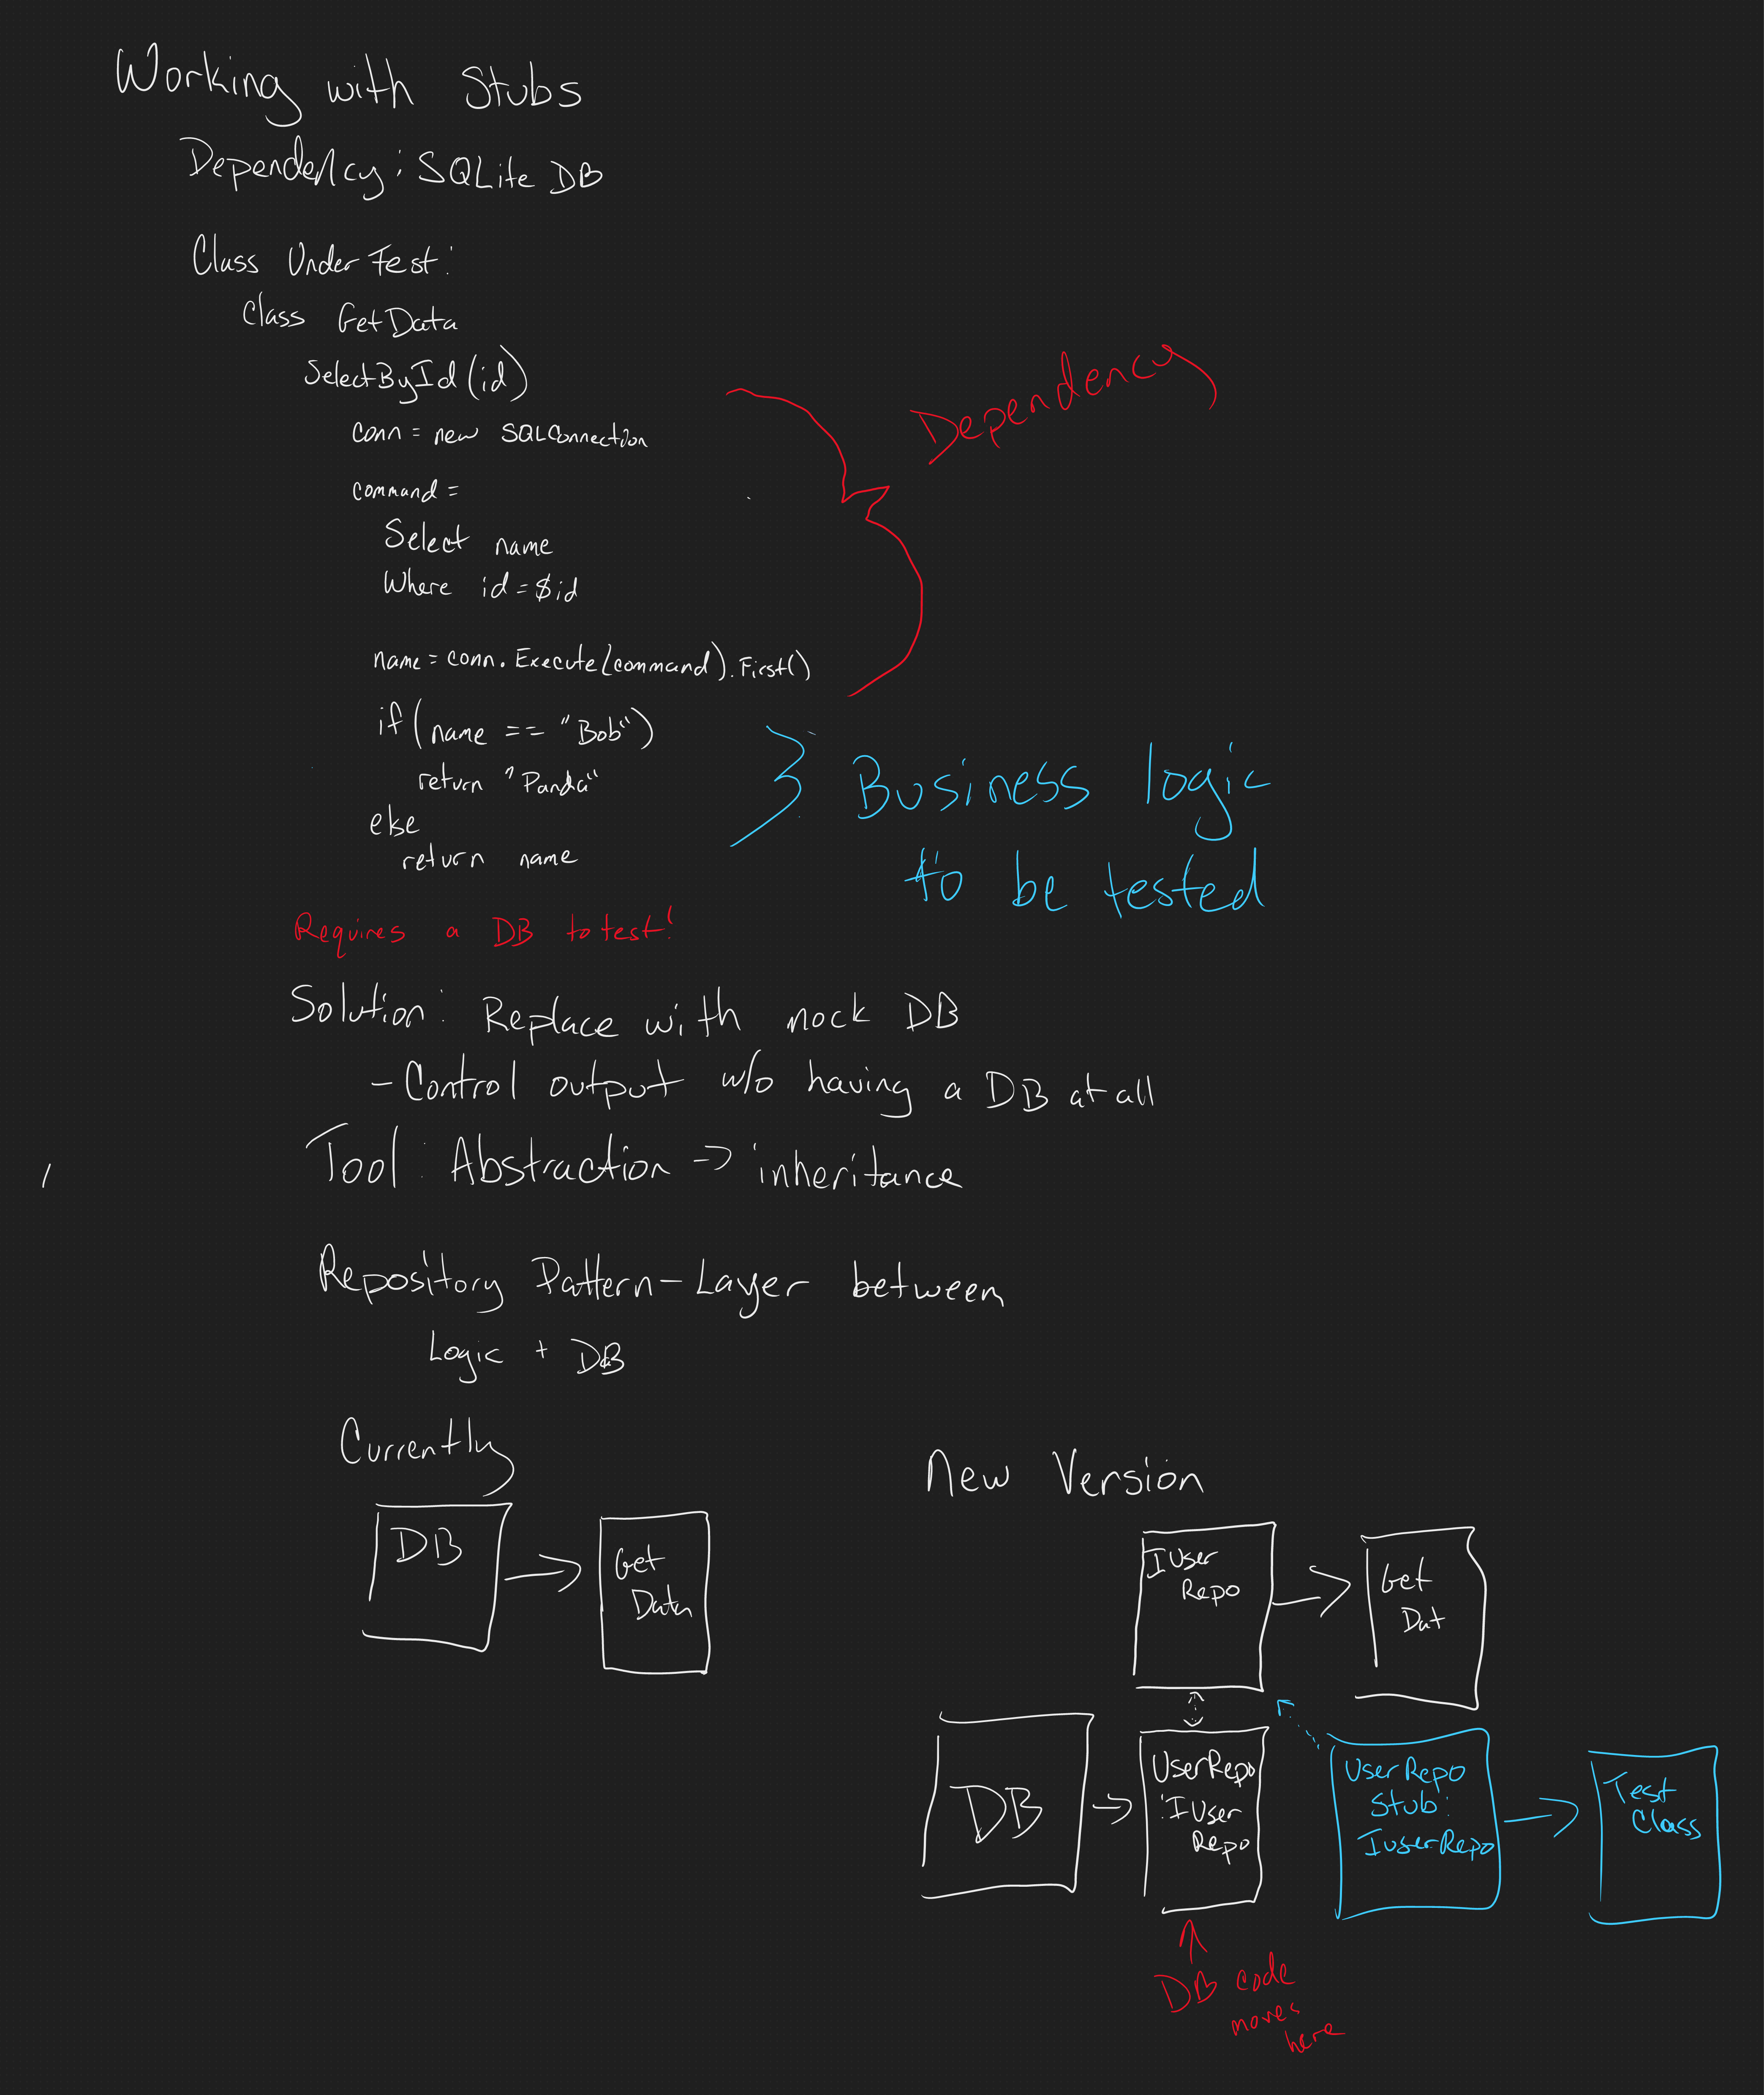 Working with Stubs
Dependency: SQLite DB
Class Under Test:
Class GetData
SelectById(id)
conn = new SQLConnection
command =
Select name
Where id = $id
name = conn.Execute(command).First()
Dependency
if (name == "Bob")
return "Panda"
else
return name
Business logic
to be tested
Requires a DB to test!
Solution: Replace with mock DB
- Control output w/o having a DB at all
Tool: Abstraction -> inheritance
Repository Pattern - Layer between
Logic + DB
Currently
DB
Get
Data
New Version
IUser
Repo
Get
Dat
DB
UserRepo
: IUser
Repo
UserRepo
Stub:
IuserRepo
Test
Class
DB code
moves
here